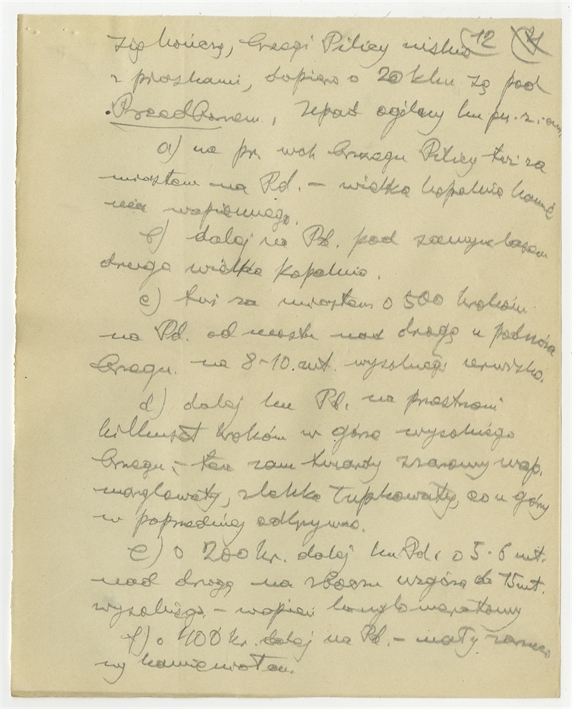 12
się kończą, brzegi Pilicy nisko
z piaskami, dopiero o 20 klm są pod
Przedborzem, upad ogólny ku pn. z.
a) na pr. brzegu Pilicy tuż za
miastem na Pd. – wielka kopalnia kamie
nia wapiennego.
b) dalej na Pd. pod
druga wielka kopalnia.
c) tuż za miastem o 500 kroków
na Pd. od mostu nad drogą u podnóża
brzegu na 8-10. mt. wysokiego urwisko.
d) dalej ku Pd. na przestrzeni
kilkuset kroków w górze wysokiego
brzegu, – ten sam twardy szarawy wap.
marglowaty, z lekka łupkowaty, co u góry
w poprzedniej odkrywce.
e) o 200 kr. dalej ku Pd. o 5-6 mt.
nad drogą na zboczu wzgórza do 15 mt.
wysokiego – wapień
f) o 400 kr. dalej na Pd. – mały
ny kamieniołom.